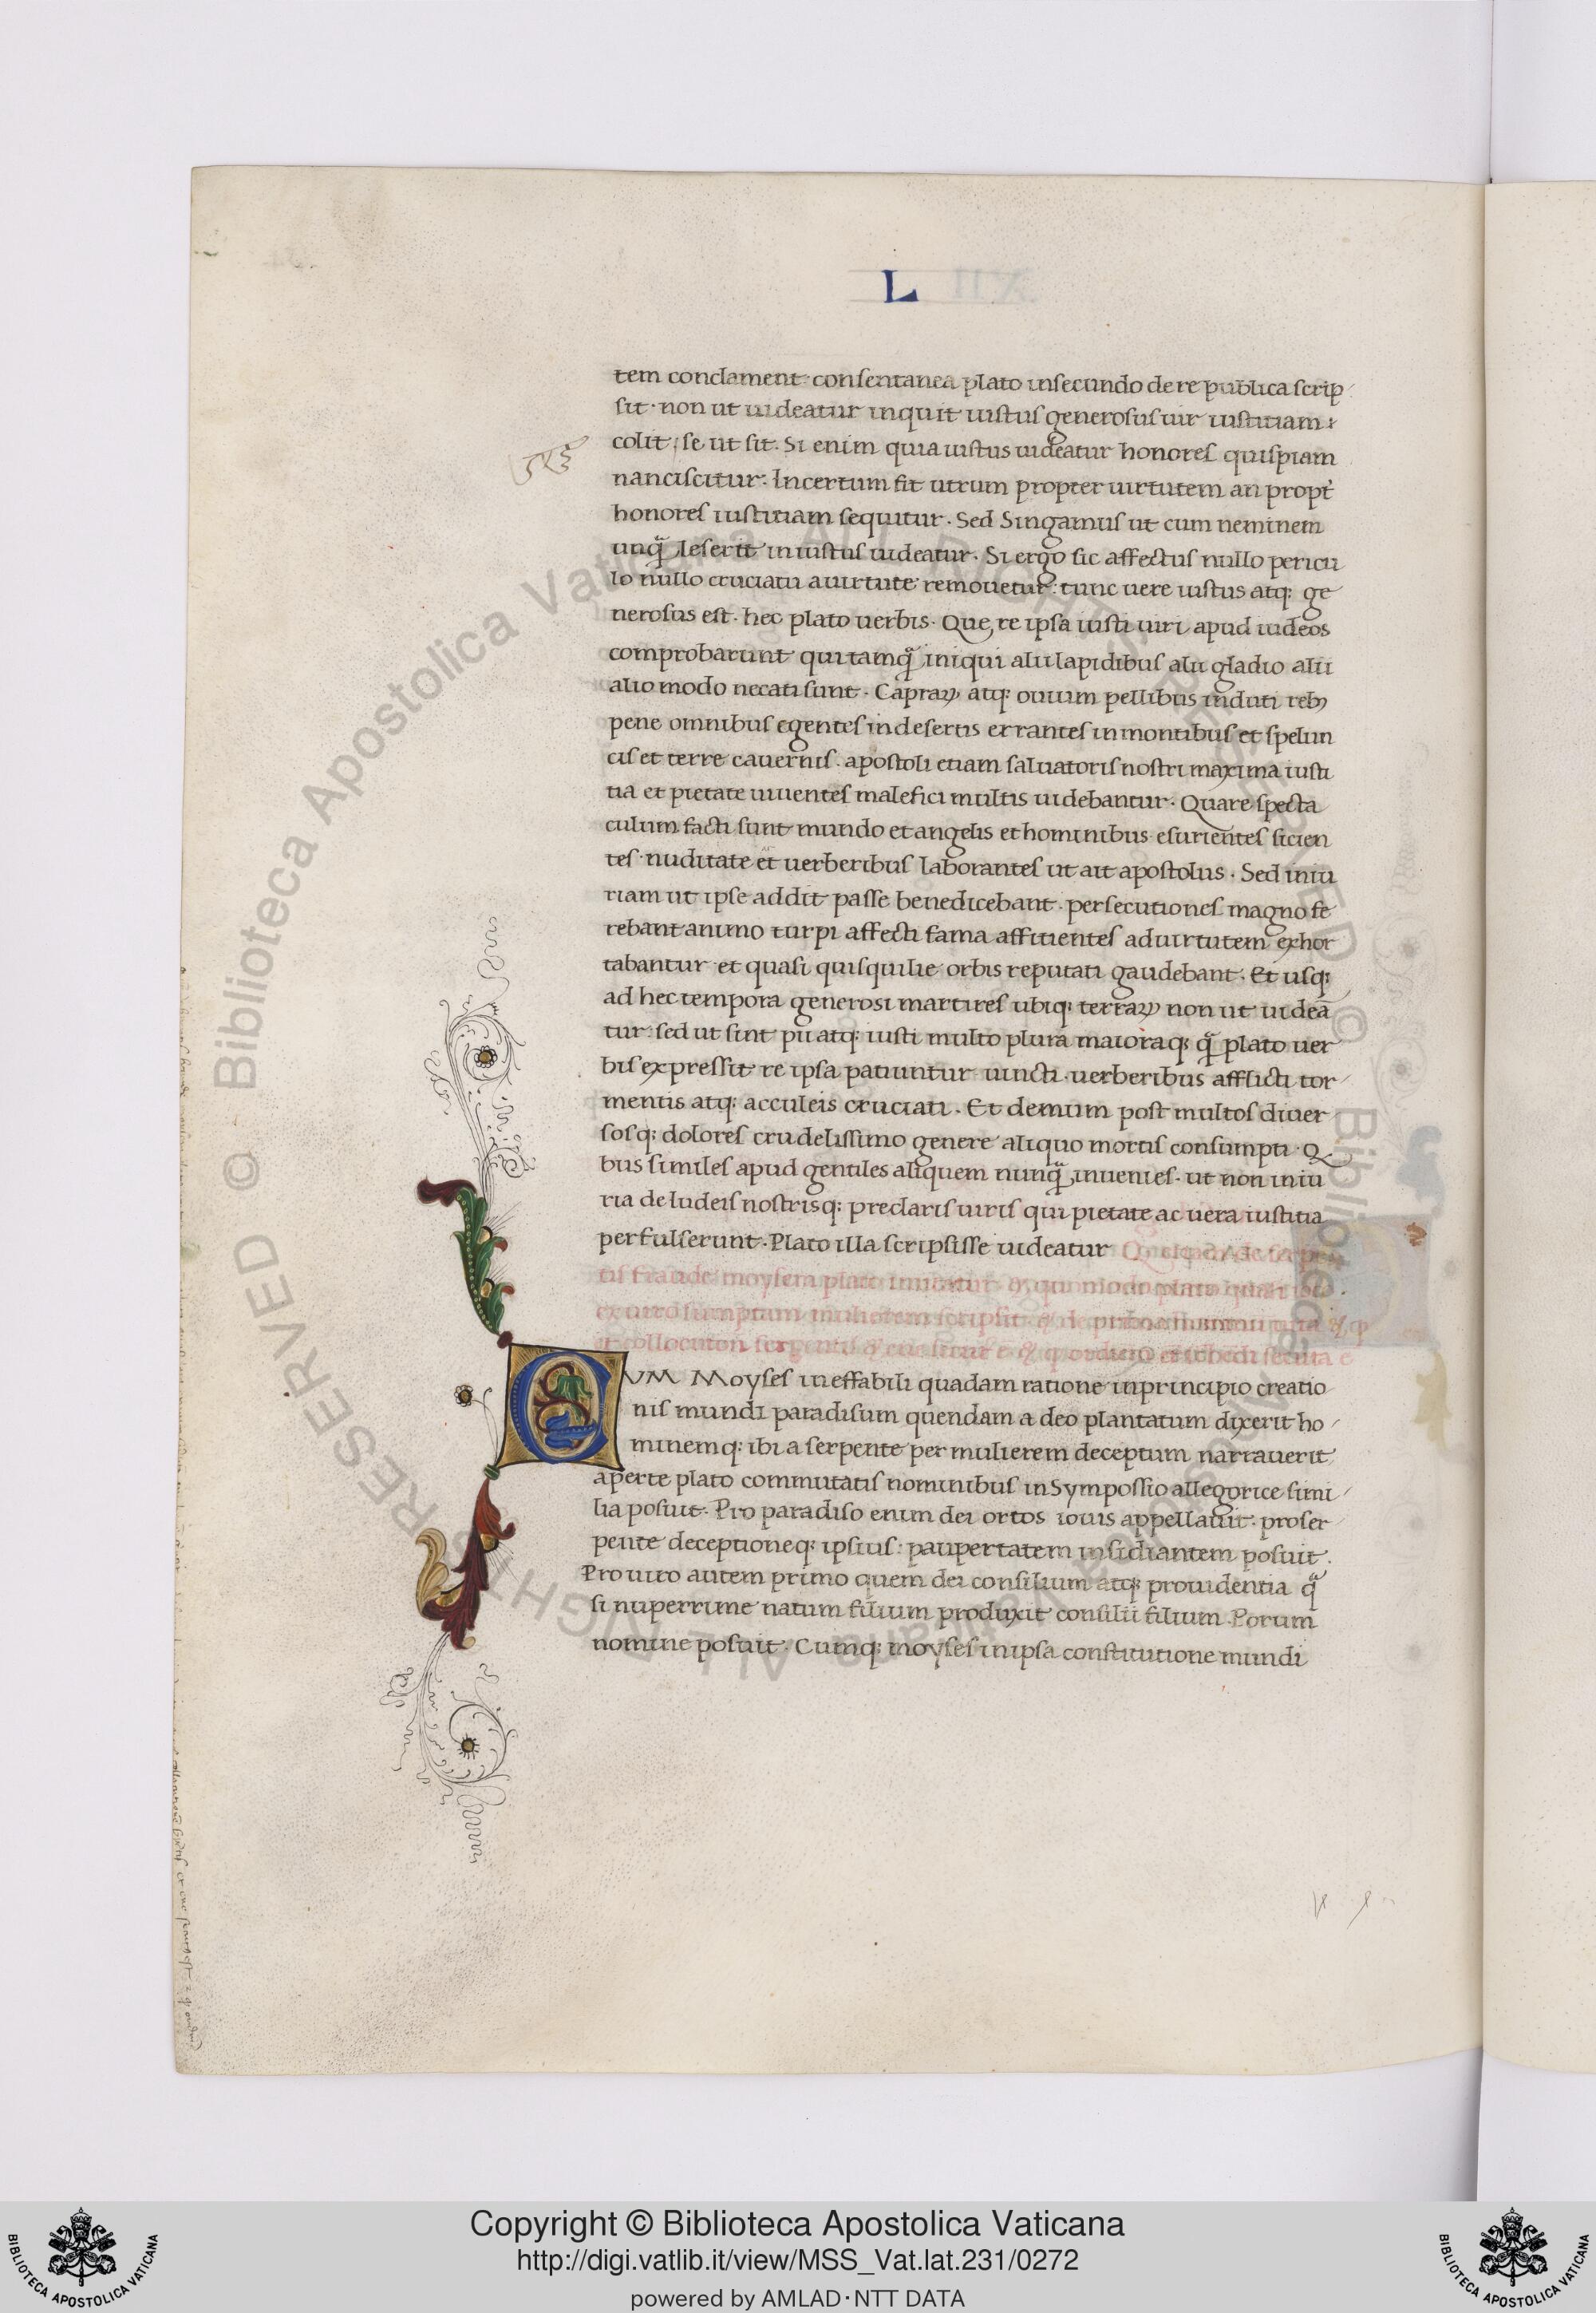 L
tem conclament consentanea plato insecundo de re publica scrip
sit · non ut uideatur inquit iustus generosus uir iustitiam
colit se ut sit. Si enim quia iustus uideatur honores quispiam
nanciscitur: Incertum fit utrum propter uirtutem an propt
honores iustitiam sequitur. Sed Singamus ut cum neminem
unq̄ leserit iniustus uideatur. Si ergo sic affectus nullo pericu
lo nullo cruciatu auirtute remouetur: tunc uere iustus atq: ge
nerosus est. hec plato uerbis. Que re ipsa iusti uiri apud iudeos
comprobarunt qui tamq̄ iniqui alii lapidibus alii gladio alii
alio modo necati sunt. Capraꝝ atq: ouium pellibus induti reb;
pene omnibus egentes indesertis errantes inmontibus et spelun
cis et terre cauernis. apostoli etiam saluatoris nostri maxima iusti
tia et pietate uiuentes malefici multis uidebantur. Quare specta
culum facti sunt mundo et angelis et hominibus esurientes sicien
tes nuditate et uerberibus laborantes ut ait apostolus. Sed iniu
riam ut ipse addit passe benedicebant. persecutiones magno fe
rebant animo turpi affecti fama affitientes aduirtutem exhor
tabantur et quasi quisquilie orbis reputati gaudebant. Et usq:
ad hec tempora generosi martires ubiq: terraꝝ non ut uideā
tur: sed ut sint pii atq: iusti multo plura maioraq: q̄ plato uer
bis expressit re ipsa patiuntur uincti. uerberibus afflicti tor
mentis atq: acculeis cruciati. Et demum post multos diuer
sosq: dolores crudelissimo genere aliquo mortis consumpti. Q
bus similes apud gentiles aliquem nunq̄ inuenies. ut non iniu
ria de Iudeis nostrisq: preclaris uiris qui pietate ac uera iustitia
perfulserunt. Plato illa scripsisse uideatur
tis fraude moysem plato imitatur quomodo plato
CVM Moyses ineffabili quadam ratione inprincipio creatio
nis mundi paradisum quendam a deo plantatum dixerit ho
minemq: ibi a serpente per mulierem deceptum narrauerit
aperte plato commutatis nominibus in Sympossio allegorice simi
lia posuit. Pro paradiso enim dei ortos iouis appellauit. proser
pente deceptioneq: ipsius: paupertatem insidiantem posuit.
Pro uiro autem primo quem dei consilium atq: prouidentia q̄
si nuperrime natum filium produxit consilii filium Porum
nomine posuit. Cumq: moyses inipsa constitutione mundi
© Biblioteca Apostolica Vaticana ALL RIGHTS RESERVED
Copyright © Biblioteca Apostolica Vaticana
http://digi.vatlib.it/view/MSS_Vat.lat.231/0272
powered by AMLAD·NTT DATA
BIBLIOTECA APOSTOLICA VATICANA
BIBLIOTECA APOSTOLICA VATICANA